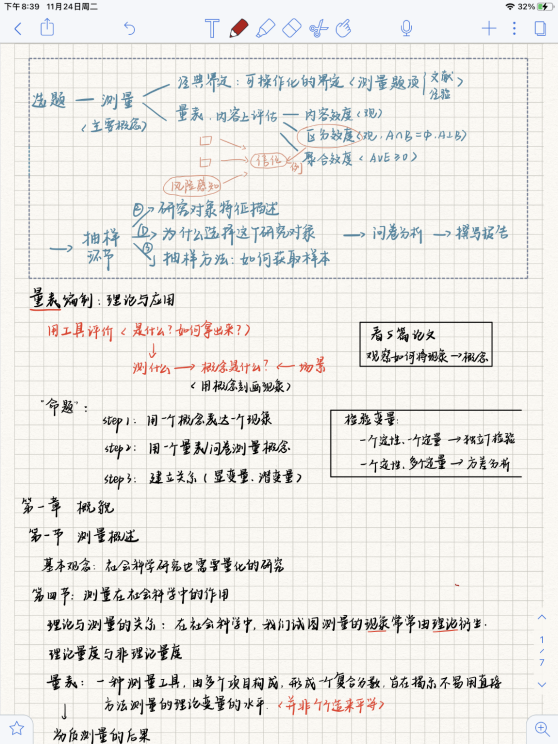 下午8:39 11月24日周二
32%
选题 — 测量
(主要概念)
经典界定:可操作化的界定(测量题项
文献
经验
)
量表、内容上评估 — 内容效度(观)
区分效度(观,A∩B=Φ,A⊥B)
聚合效度(AVE≥0)
信任
例
风险感知
→ 抽样
环节
② 研究对象特征描述
① 为什么选择这个研究对象 → 问卷分析 → 撰写报告
③ 抽样方法:如何获取样本
量表编制:理论与应用
用工具评价(是什么?如何拿出来?)
↓
测什么 → 概念是什么? ← 场景
(用概念刻画现象)
看5篇论文
观察如何将现象→概念
"命题":
step1:用一个概念表达一个现象
step2:用一个量表/问卷测量概念
step3:建立关系(显变量、潜变量)
检验变量:
一个定性、一个定量→独立T检验
一个定性、多个定量→方差分析
第一章 概貌
第一节 测量概述
基本观念:社会科学研究也需要量化的研究
第四节:测量在社会科学中的作用
理论与测量的关系:在社会科学中,我们试图测量的现象常常由理论衍生.
理论量度与非理论量度
量表:一种测量工具,由多个项目构成,形成一个复合分数,旨在揭示不易用直接
方法测量的理论变量的水平.(并非个个造来平等)
↓
为反测量的后果
1
/
7